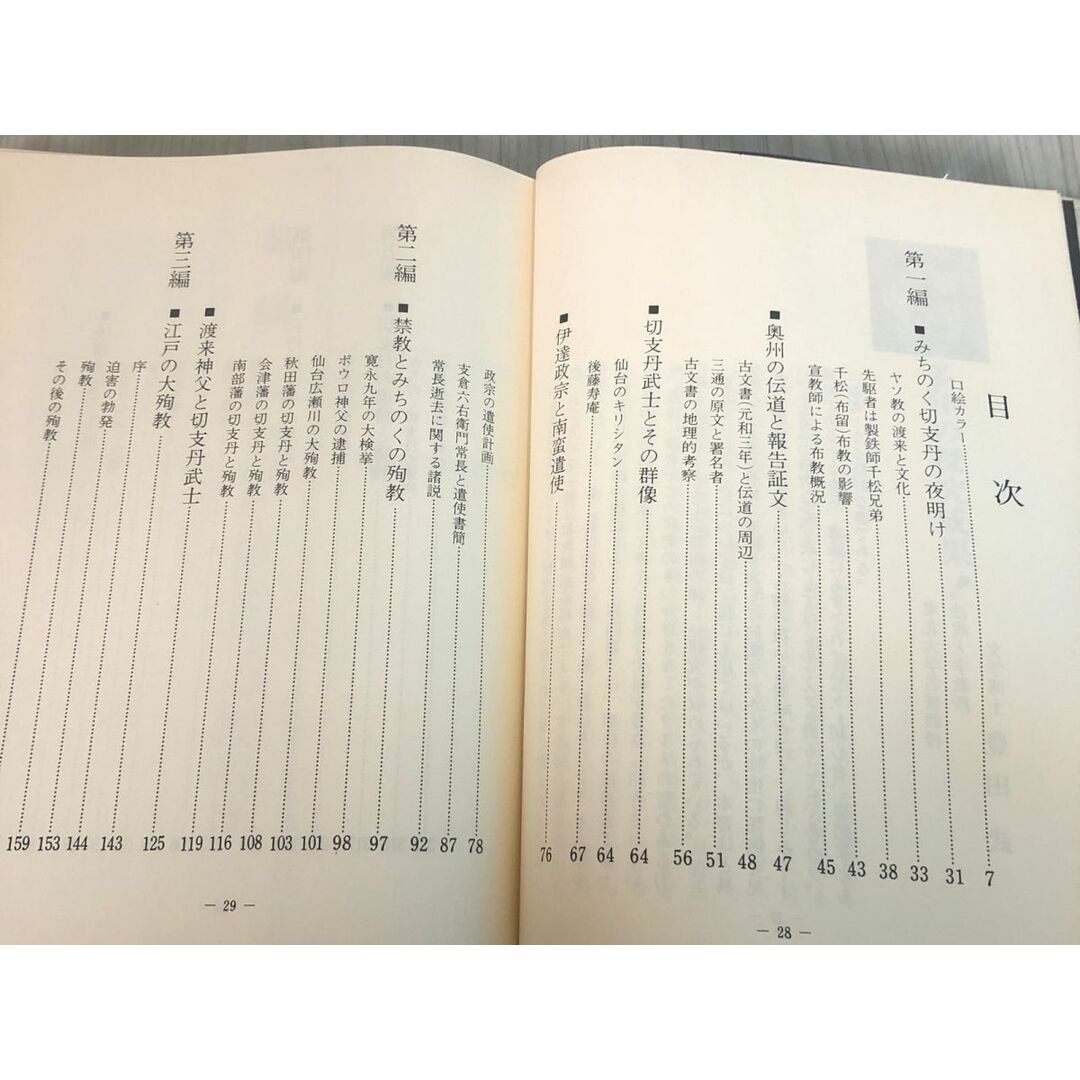 目次
口絵カラー……7
第一編 ■みちのく切支丹の夜明け……31
ヤソ教の渡来と文化……33
先駆者は製鉄師千松兄弟……38
千松(布留)布教の影響……43
宣教師による布教概況……45
■奥州の伝道と報告証文……47
古文書(元和三年)と伝道の周辺……48
三通の原文と署名者……51
古文書の地理的考察……56
■切支丹武士とその群像……64
仙台のキリシタン……64
後藤寿庵……67
■伊達政宗と南蛮遣使……76
— 28 —
政宗の遣使計画……78
支倉六右衛門常長と遣使書簡……87
常長逝去に関する諸説……92
第二編 ■禁教とみちのくの殉教……97
寛永九年の大検挙……98
ポウロ神父の逮捕……101
仙台広瀬川の大殉教……103
秋田藩の切支丹と殉教……108
会津藩の切支丹と殉教……116
南部藩の切支丹と殉教……119
■渡来神父と切支丹武士……125
第三編 ■江戸の大殉教……143
序……144
迫害の勃発……153
殉教……159
その後の殉教……
— 29 —